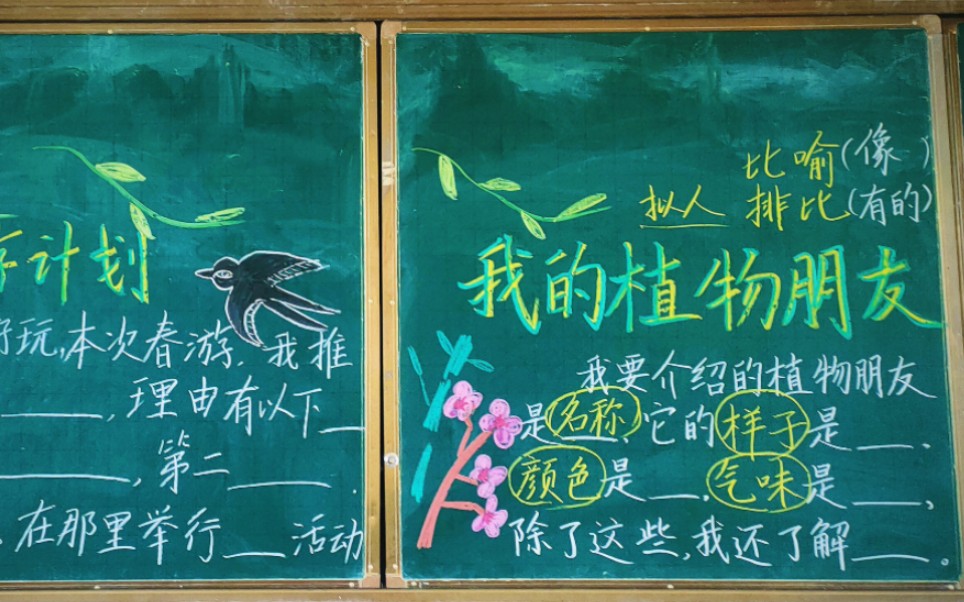 计划
好玩,本次春游,我推
___,理由有以下_
___,第二___.
在那里举行__活动
比喻(像 )
拟人 排比(有的)
我的植物朋友
我要介绍的植物朋友
是名称,它的样子是__.
颜色是__,气味是___,
除了这些,我还了解___.